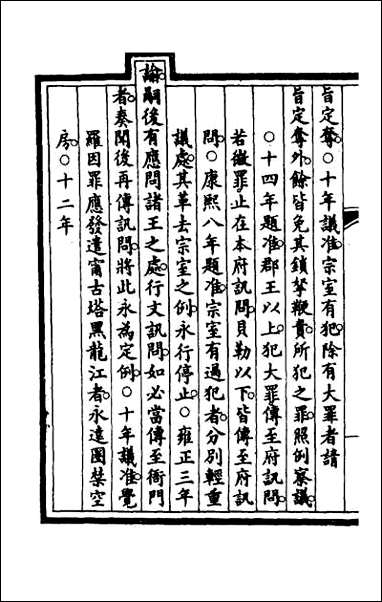 旨定奪○十年議准宗室有犯除有大罪者請
旨定奪外餘皆免其鎖拏鞭責所犯之罪照例察議
○十四年題准郡王以上犯大罪傳至府訊問
若微罪止在本府訊問貝勒以下皆傳至府訊
問○康熙八年題准宗室有過犯者分別輕重
議處其革去宗室之例永行停止○雍正三年
諭嗣後有應問諸王之處行文訊問如必當傳至衙門
者奏聞後再傳訊問將此永為定例○十年議准覺
羅因罪應發遣甯古塔黑龍江者永遠圈禁空
房○十二年